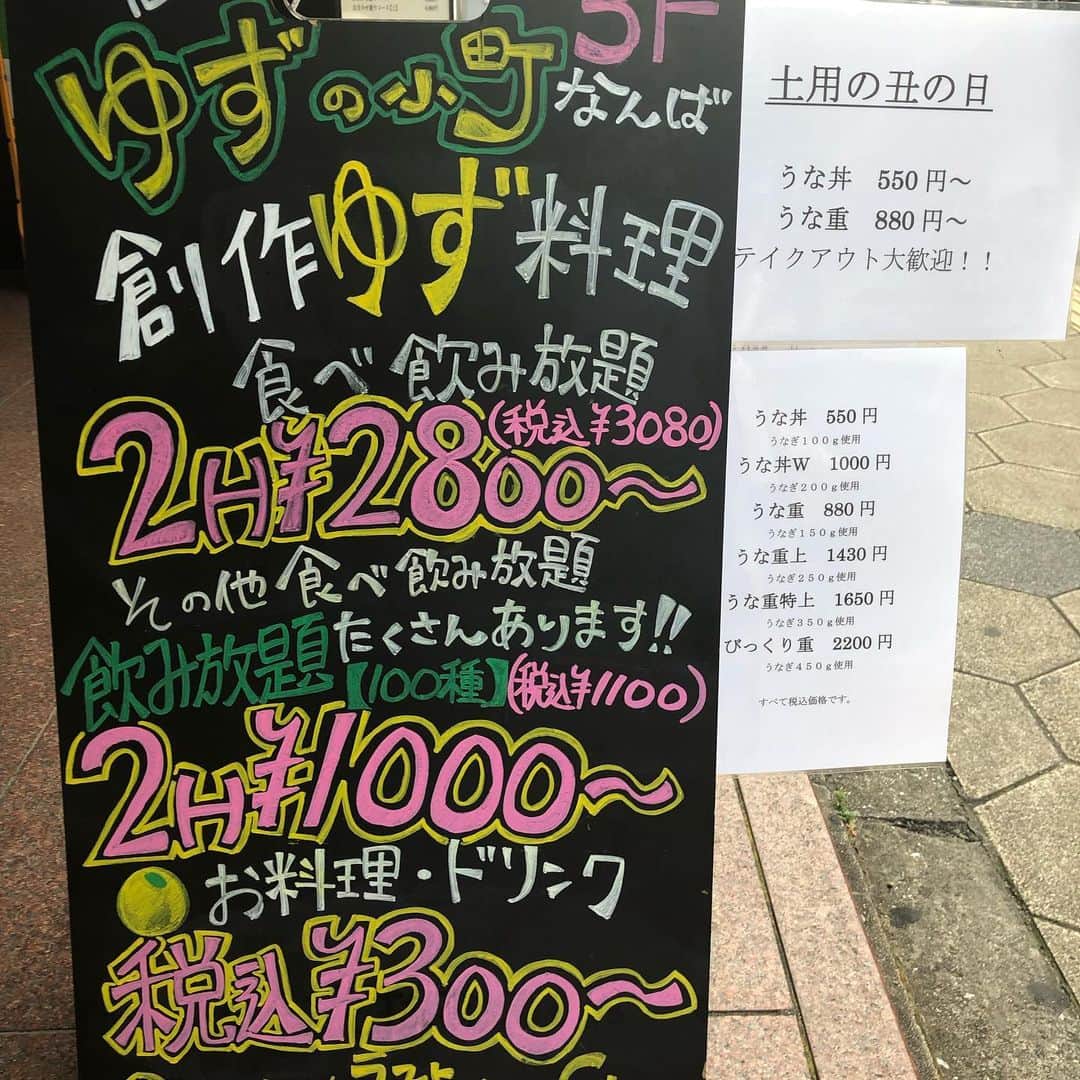 3F
ゆずの小町
なんば
創作ゆず料理
食べ飲み放題
(税込¥3080)
2H¥2800〜
その他食べ飲み放題
たくさんあります!!
飲み放題【100種】(税込¥1100)
2H¥1000〜
お料理・ドリンク
税込¥300〜
土用の丑の日
うな丼 550円〜
うな重 880円〜
テイクアウト大歓迎！！
うな丼 550円
うなぎ１００ｇ使用
うな丼W 1000円
うなぎ２００ｇ使用
うな重 880円
うなぎ１５０ｇ使用
うな重上 1430円
うなぎ２５０ｇ使用
うな重特上 1650円
うなぎ３５０ｇ使用
びっくり重 2200円
うなぎ４５０ｇ使用
すべて税込価格です。